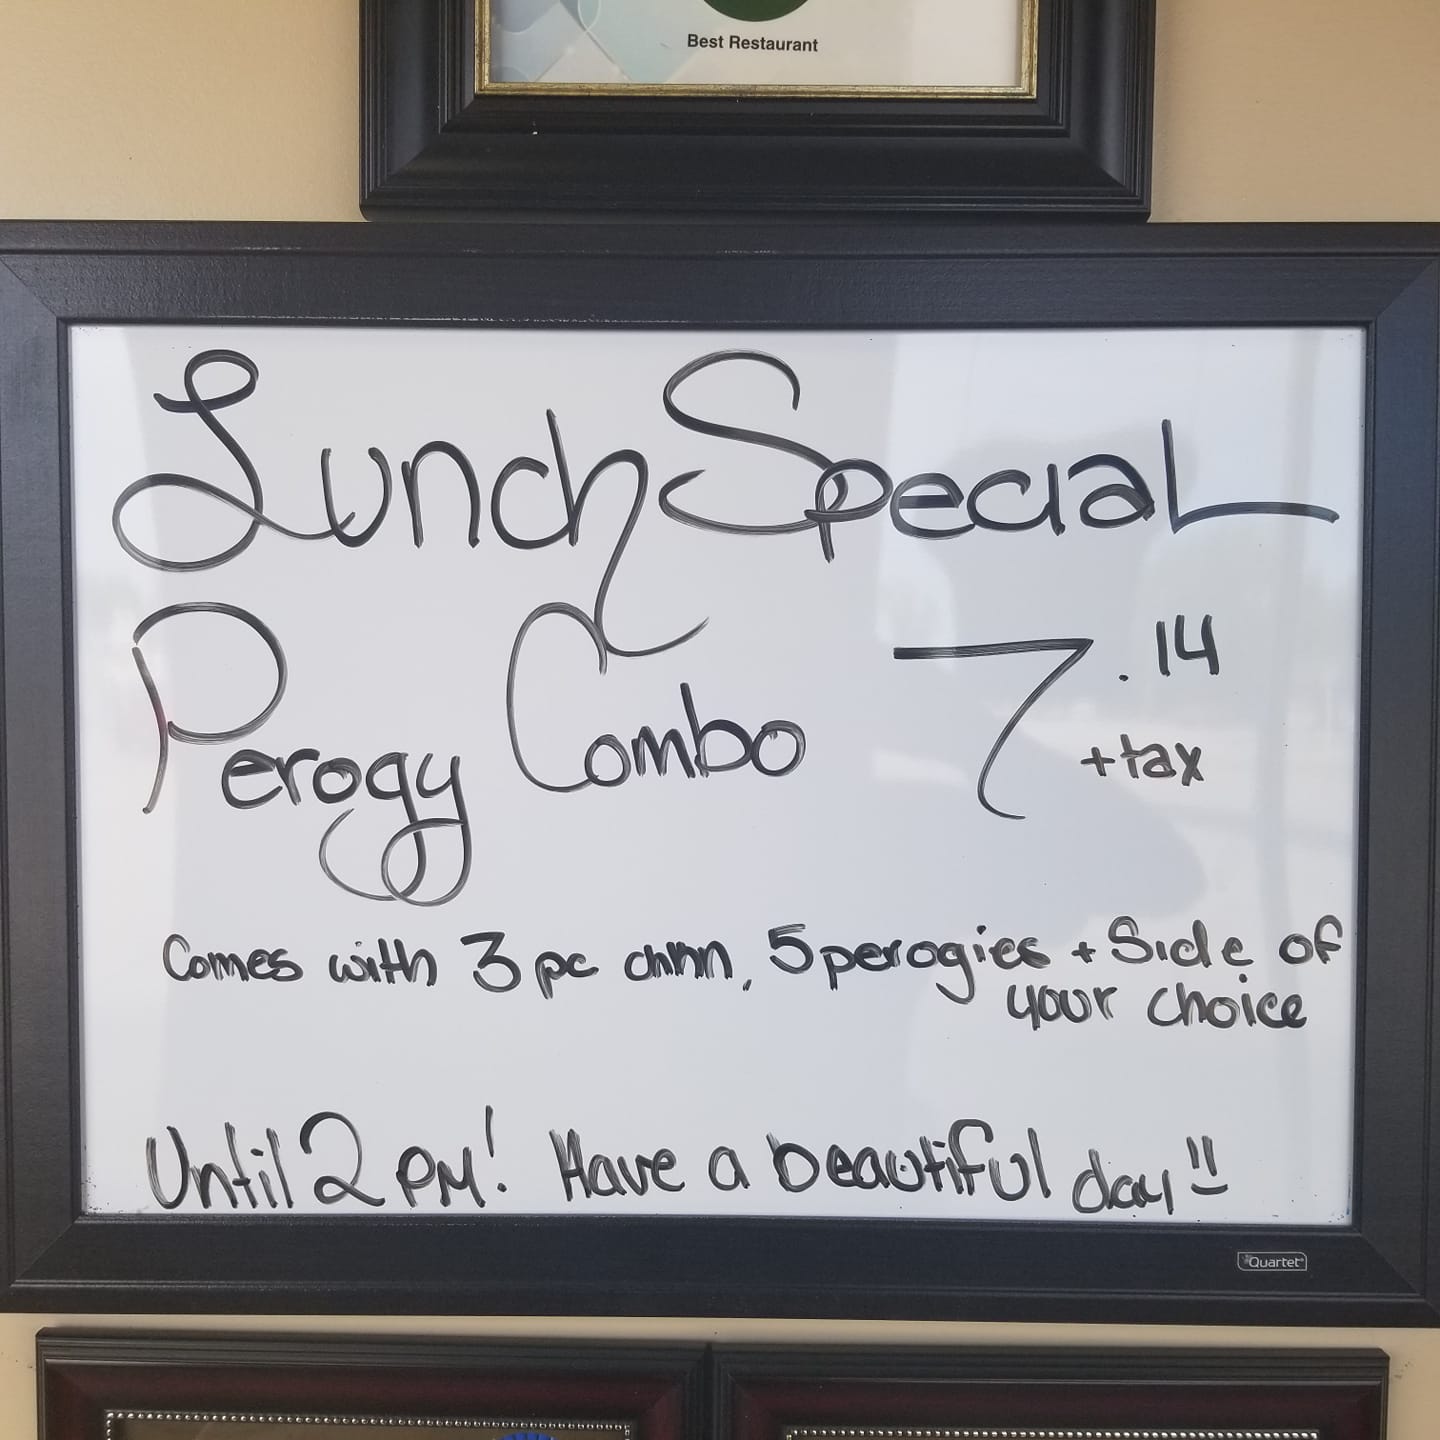 Best Restaurant
Lunch Special
Perogy Combo 7.14
+tax
Comes with 3 pc chkn, 5 perogies + Side of
your choice
Until 2 PM! Have a beautiful day!!
Quartet